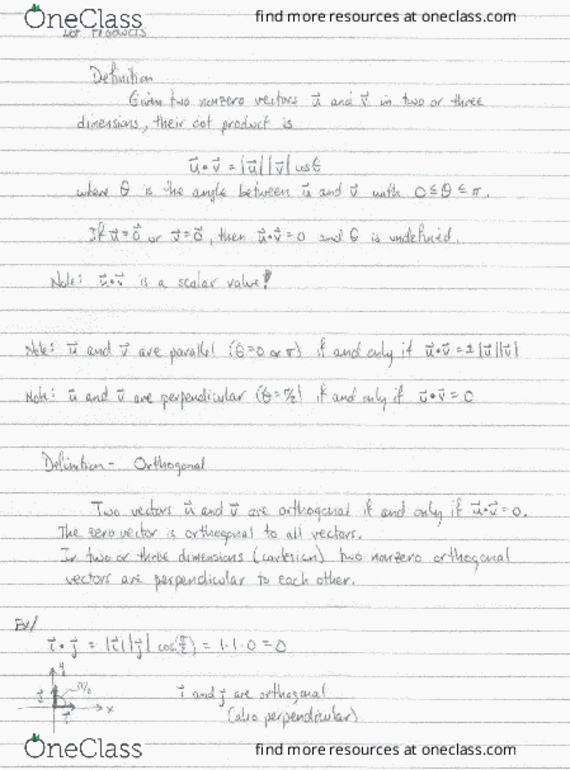 OneClass find more resources at oneclass.com
Dot Products
Definition
Given two nonzero vectors u⃗ and v⃗ in two or three
dimensions, their dot product is
u⃗•v⃗ = |u⃗||v⃗| cosθ
where θ is the angle between u⃗ and v⃗ with 0≤θ≤π.
If u⃗=0⃗ or v⃗=0⃗, then u⃗•v⃗=0 and θ is undefined.
Note: u⃗•v⃗ is a scalar value!
Note: u⃗ and v⃗ are parallel (θ=0 or π) if and only if u⃗•v⃗=±|u⃗||v⃗|
Note: u⃗ and v⃗ are perpendicular (θ=π/2) if and only if u⃗•v⃗=0
Definition - Orthogonal
Two vectors u⃗ and v⃗ are orthogonal if and only if u⃗•v⃗=0.
The zero vector is orthogonal to all vectors.
In two or three dimensions (cartesian) two nonzero orthogonal
vectors are perpendicular to each other.
Ex/
i⃗•j⃗ = |i⃗||j⃗| cos(π/2) = 1·1·0 = 0
y
j⃗ π/2
i⃗ x
i⃗ and j⃗ are orthogonal
(also perpendicular)
OneClass find more resources at oneclass.com